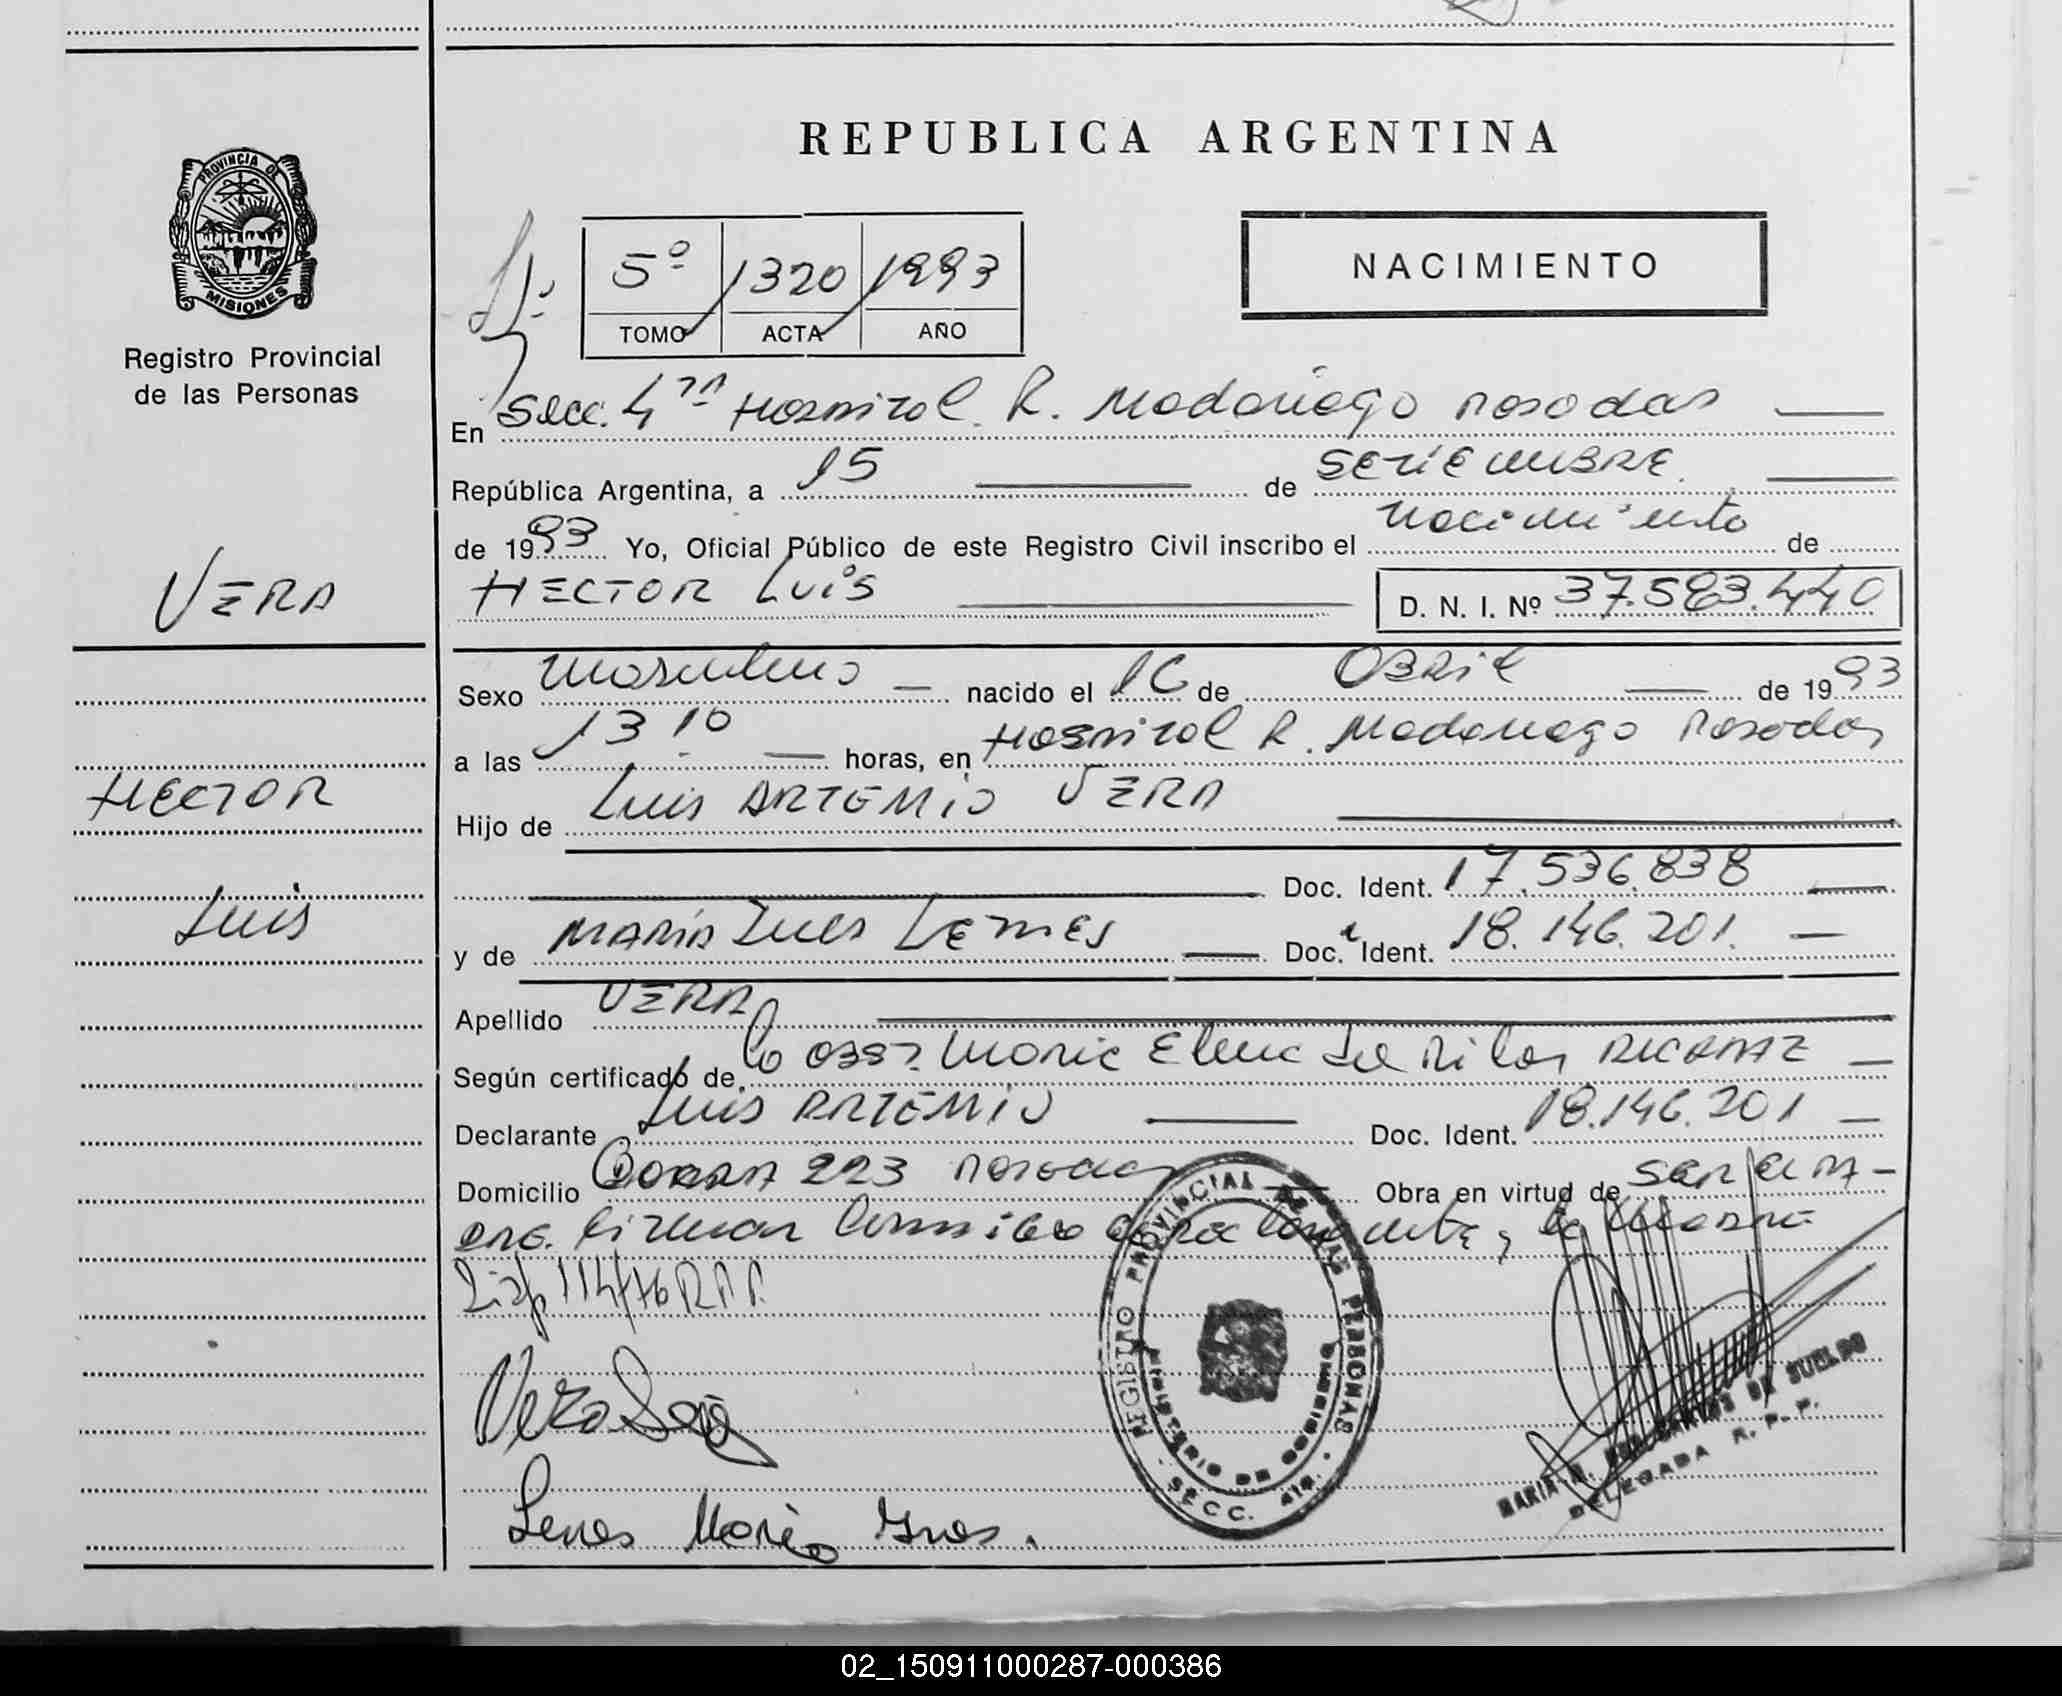 REPUBLICA ARGENTINA
PROVINCIA DE
MISIONES
Registro Provincial
de las Personas
5º 1320 1993
TOMO ACTA AÑO
NACIMIENTO
En Secc. 4ta Hospital R. Madariaga Posadas
República Argentina, a 15 de SETIEMBRE
de 1993 Yo, Oficial Público de este Registro Civil inscribo el nacimiento de
HECTOR Luis D. N. I. Nº 37.583.440
VERA
HECTOR
Luis
Sexo Masculino nacido el 16 de Abril de 1993
a las 13 10 horas, en Hospital R. Madariaga Posadas
Hijo de Luis ARTEMIO VERA
Doc. Ident. 17.536.838
y de MARIA Ines Lemes Doc. Ident. 18.146.201
Apellido VERA
Según certificado de la Obst. Maria Elena
Declarante Luis ARTEMIO Doc. Ident. 18.146.201
Domicilio 223 Posadas Obra en virtud de ser el M-
firman
Disp 114/76 R.P.P.
Vera Luis
Lemes Maria Ines.
REGISTRO PROVINCIAL DE LAS PERSONAS
MINISTERIO DE GOBIERNO
SECC. 4ta.
MARIA DE SUELDO
DELEGADA R. P. P.
02_150911000287-000386